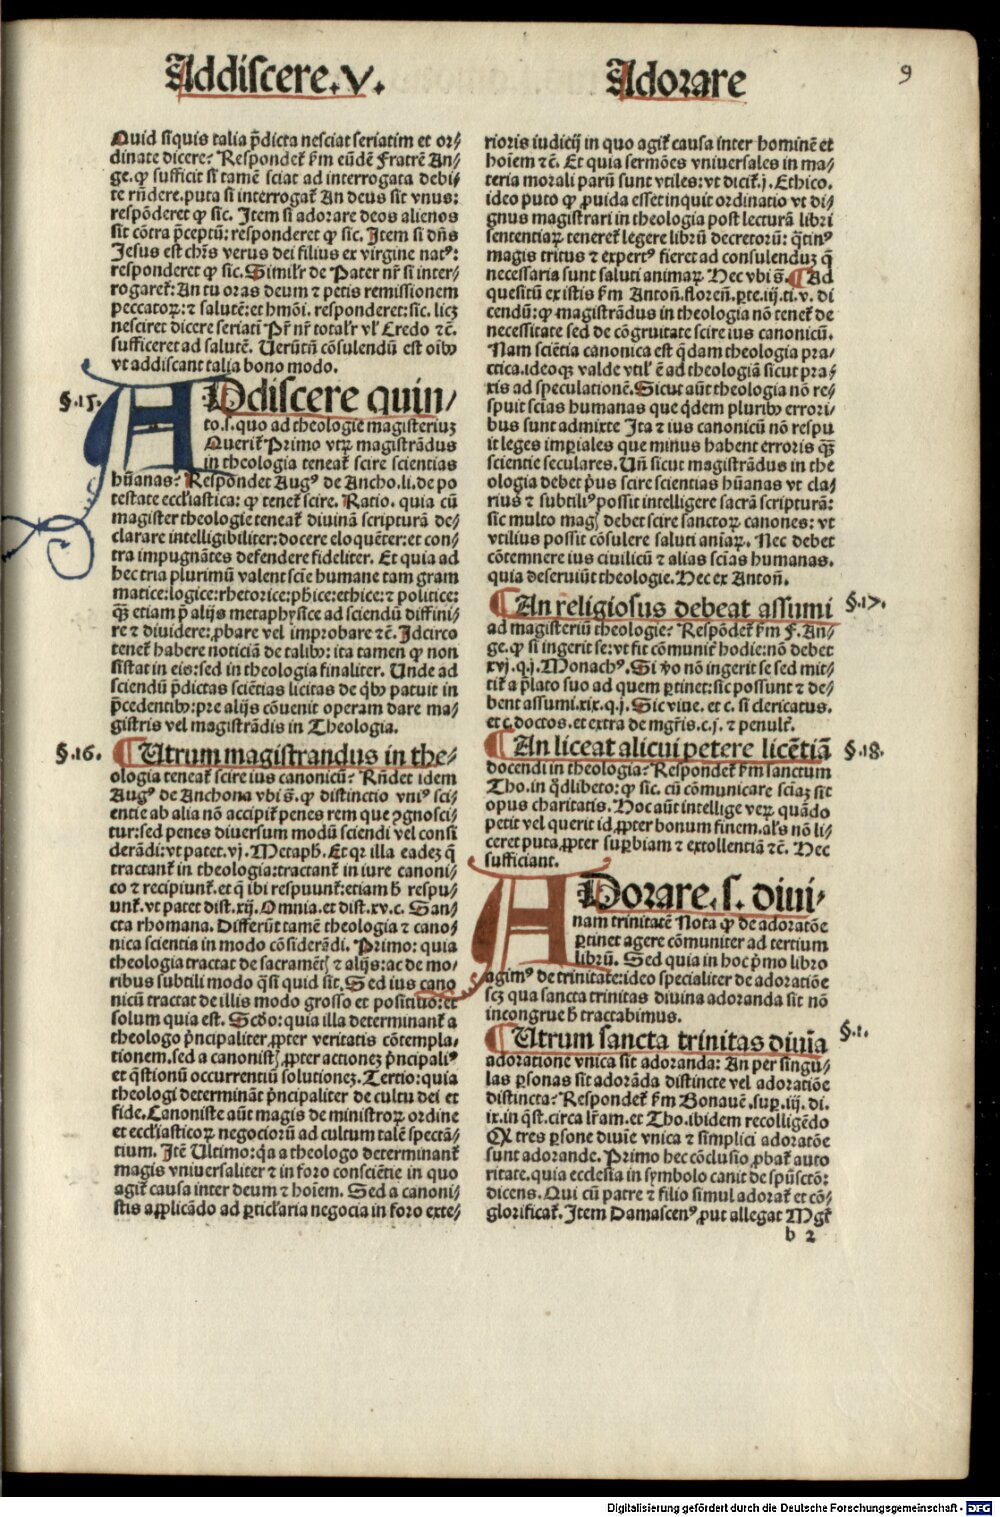 Addiscere. V.
Adorare
9
Quid siquis talia p̄dicta nesciat seriatim et or⸗
dinate dicere? Respondet᷑ ẜm eūdē Fratrē An⸗
ge. ꝙ sufficit si tamē sciat ad interrogata debi⸗
te rn̄dere. puta si interrogat᷑ An deus sit vnus:
respōderet ꝙ sic. Item si adorare deos alienos
sit cōtra p̄ceptū: responderet ꝙ sic. Item si dn̄s
Jesus est chr̄s verus dei filius ex virgine natꝰ:
responderet ꝙ sic. Simil'r de Pater nr̄ si inter⸗
rogaret᷑: An tu oras deum ⁊ petis remissionem
peccatoꝝ: ⁊ salutē: et hmōi. responderet: sic. licꝫ
nesciret dicere seriatī Pr̄ nr̄ total'r vl' Credo ⁊c̄.
sufficeret ad salutē. Verūtn̄ cōsulendū est oībꝰ
vt addiscant talia bono modo.
§. 15.
ADdiscere quin⸗
to. s. quo ad theologie magisteriuꝫ
Querit᷑ Primo vtꝝ magistrādus
in theologia teneat᷑ scire scientias
hūanas? Respondet Augꝰ de Ancho. li. de po
testate eccl'iastica: ꝙ tenet᷑ scire. Ratio. quia cū
magister theologie teneat᷑ diuinā scripturā de⸗
clarare intelligibiliter: docere eloquēter: et con⸗
tra impugnātes defendere fideliter. Et quia ad
hec tria plurimū valent scīe humane tam gram
matice: logice: rhetorice: phīce: ethice: ⁊ politice:
q̄ꝫ etiam ꝑ alijs metaphysice ad sciendū diffini⸗
re ⁊ diuidere: ꝓbare vel improbare ⁊c̄. Idcirco
tenet᷑ habere noticiā de talibꝰ: ita tamen ꝙ non
sistat in eis: sed in theologia finaliter. Unde ad
sciendū p̄dictas sciētias licitas de qͥbꝰ patuit in
p̄cedentibꝰ: pre alijs cōuenit operam dare ma⸗
gistris vel magistrādis in Theologia.
§. 16.
¶ Utrum magistrandus in the⸗
ologia teneat᷑ scire ius canonicū? Rn̄det idem
Augꝰ de Anchona vbi s̄. ꝙ distinctio vniꝰ sci⸗
entie ab alia nō accipit᷑ penes rem que ꝯgnosci⸗
tur: sed penes diuersum modū sciendi vel consi
derādi: vt patet. vj. Metaph̄. Et qꝛ illa eadeꝫ q̄
tractant᷑ in theologia: tractant᷑ in iure canoni⸗
co ⁊ recipiunt᷑. et q̄ ibi respuunt᷑: etiam h̄ respu⸗
unt᷑. vt patet dist. xij. Omnia. et dist. xv. c. San⸗
cta rhomana. Differūt tamē theologia ⁊ cano⸗
nica scientia in modo cōsiderādi. Primo: quia
theologia tractat de sacramētꝭ ⁊ alijs: ac de mo⸗
ribus subtili modo q̄si quid sit. Sed ius cano
nicū tractat de illis modo grosso et positiuo: et
solum quia est. Scd̄o: quia illa determinant᷑ a
theologo p̄ncipaliter ꝓpter veritatis cōtempla⸗
tionem. sed a canonistꝭ ꝓpter actionez p̄ncipaliꝰ
et q̄stionū occurrentiū solutionez. Tertio: quia
theologi determināt p̄ncipaliter de cultu dei et
fide. Canoniste aūt magis de ministroꝝ ordine
et eccl'iasticoꝝ negociorū ad cultum talē spectā⸗
tium. Itē Ultimo: qͥa a theologo determinant᷑
magis vniuersaliter ⁊ in foro consciētie in quo
agit᷑ causa inter deum ⁊ hoīem. Sed a canoni⸗
stis applicādo ad ꝑticl'aria negocia in foro exte⸗
rioris iudicij in quo agit᷑ causa inter hominē et
hoīem ⁊c̄. Et quia sermōes vniuersales in ma⸗
teria morali parū sunt vtiles: vt dicit᷑. j. Ethico.
ideo puto ꝙ ꝓuida esset inquit ordinatio vt di⸗
gnus magistrari in theologia post lecturā libri
sententiaꝝ teneret᷑ legere librū decretorū: q̄tinꝰ
magis tritus ⁊ expertꝰ fieret ad consulenduꝫ q̄
necessaria sunt saluti animaꝝ. Hec vbi s̄. ¶ Ad
quesitū ex istis ẜm Antoñ. floreñ. ꝑte. iij. ti. v. di
cendū: ꝙ magistrādus in theologia nō tenet᷑ de
necessitate sed de cōgruitate scire ius canonicū.
Nam sciētia canonica est q̄dam theologia pra⸗
ctica. ideoqꝫ valde vtil' ē ad theologiā sicut pra⸗
xis ad speculationē. Sicut aūt theologia nō re⸗
spuit scīas humanas que q̄dem pluribꝰ errori⸗
bus sunt admixte Ita ⁊ ius canonicū nō respu
it leges imꝑiales que minus habent erroris q̄ꝫ
scientie seculares. Un̄ sicut magistrādus in the
ologia debet p̄us scire scientias hūanas vt cla⸗
rius ⁊ subtiliꝰ possit intelligere sacrā scripturā:
sic multo magꝭ debet scire sanctoꝝ canones: vt
vtilius possit cōsulere saluti aniāꝝ. Nec debet
cōtemnere ius ciuilicū ⁊ alias scīas humanas.
quia deseruiūt theologie. Hec ex Antoñ.
¶ An religiosus debeat assumi
§. 17.
ad magisteriū theologie? Respōdet᷑ ẜm F. An⸗
ge. ꝙ si ingerit se: vt fit cōmunit᷑ hodie: nō debet
xvj. q. j. Monachꝰ. Si v̊o nō ingerit se sed mit⸗
tit᷑ a p̄lato suo ad quem ꝑtinet: sic possunt ⁊ de⸗
bent assumi. xix. q. j. Sic viue. et c. si clericatus.
et c. doctos. et extra de mgr̄is. c. j. ⁊ penult᷑.
¶ An liceat alicui petere licētiā
§. 18.
docendi in theologia? Respondet᷑ ẜm sanctum
Tho. in q̄dlibeto: ꝙ sic. cū cōmunicare sciaꝫ sit
opus charitatis. Hoc aūt intellige veꝝ quādo
petit vel querit id ꝓpter bonum finem. al's nō li⸗
ceret puta ꝓpter suꝑbiam ⁊ extollentiā ⁊c̄. Hec
sufficiant.
ADorare. s. diui⸗
nam trinitatē Nota ꝙ de adoratōe
ꝑtinet agere cōmuniter ad tertium
librū. Sed quia in hoc p̄mo libro
agimꝰ de trinitate: ideo specialiter de adoratiōe
scꝫ qua sancta trinitas diuina adoranda sit nō
incongrue h̄ tractabimus.
¶ Utrum sancta trinitas diuīa
§. 1.
adoratione vnica sit adoranda: An per singu⸗
las ꝑsonas sit adorāda distincte vel adoratiōe
distincta? Respondet᷑ ẜm Bonauē. suꝑ. iij. di.
ix. in q̄st. circa lr̄am. et Tho. ibidem recolligēdo
Qꝙ tres ꝑsone diuīe vnica ⁊ simplici adoratōe
sunt adorande. Primo hec cōclusio ꝓbat᷑ auto
ritate. quia ecclesia in symbolo canit de spūsctō:
dicens. Qui cū patre ⁊ filio simul adorat᷑ et cō⸗
glorificat᷑. Item Damascenꝰ ꝓut allegat Mgr̄
b 2
Digitalisierung gefördert durch die Deutsche Forschungsgemeinschaft - DFG